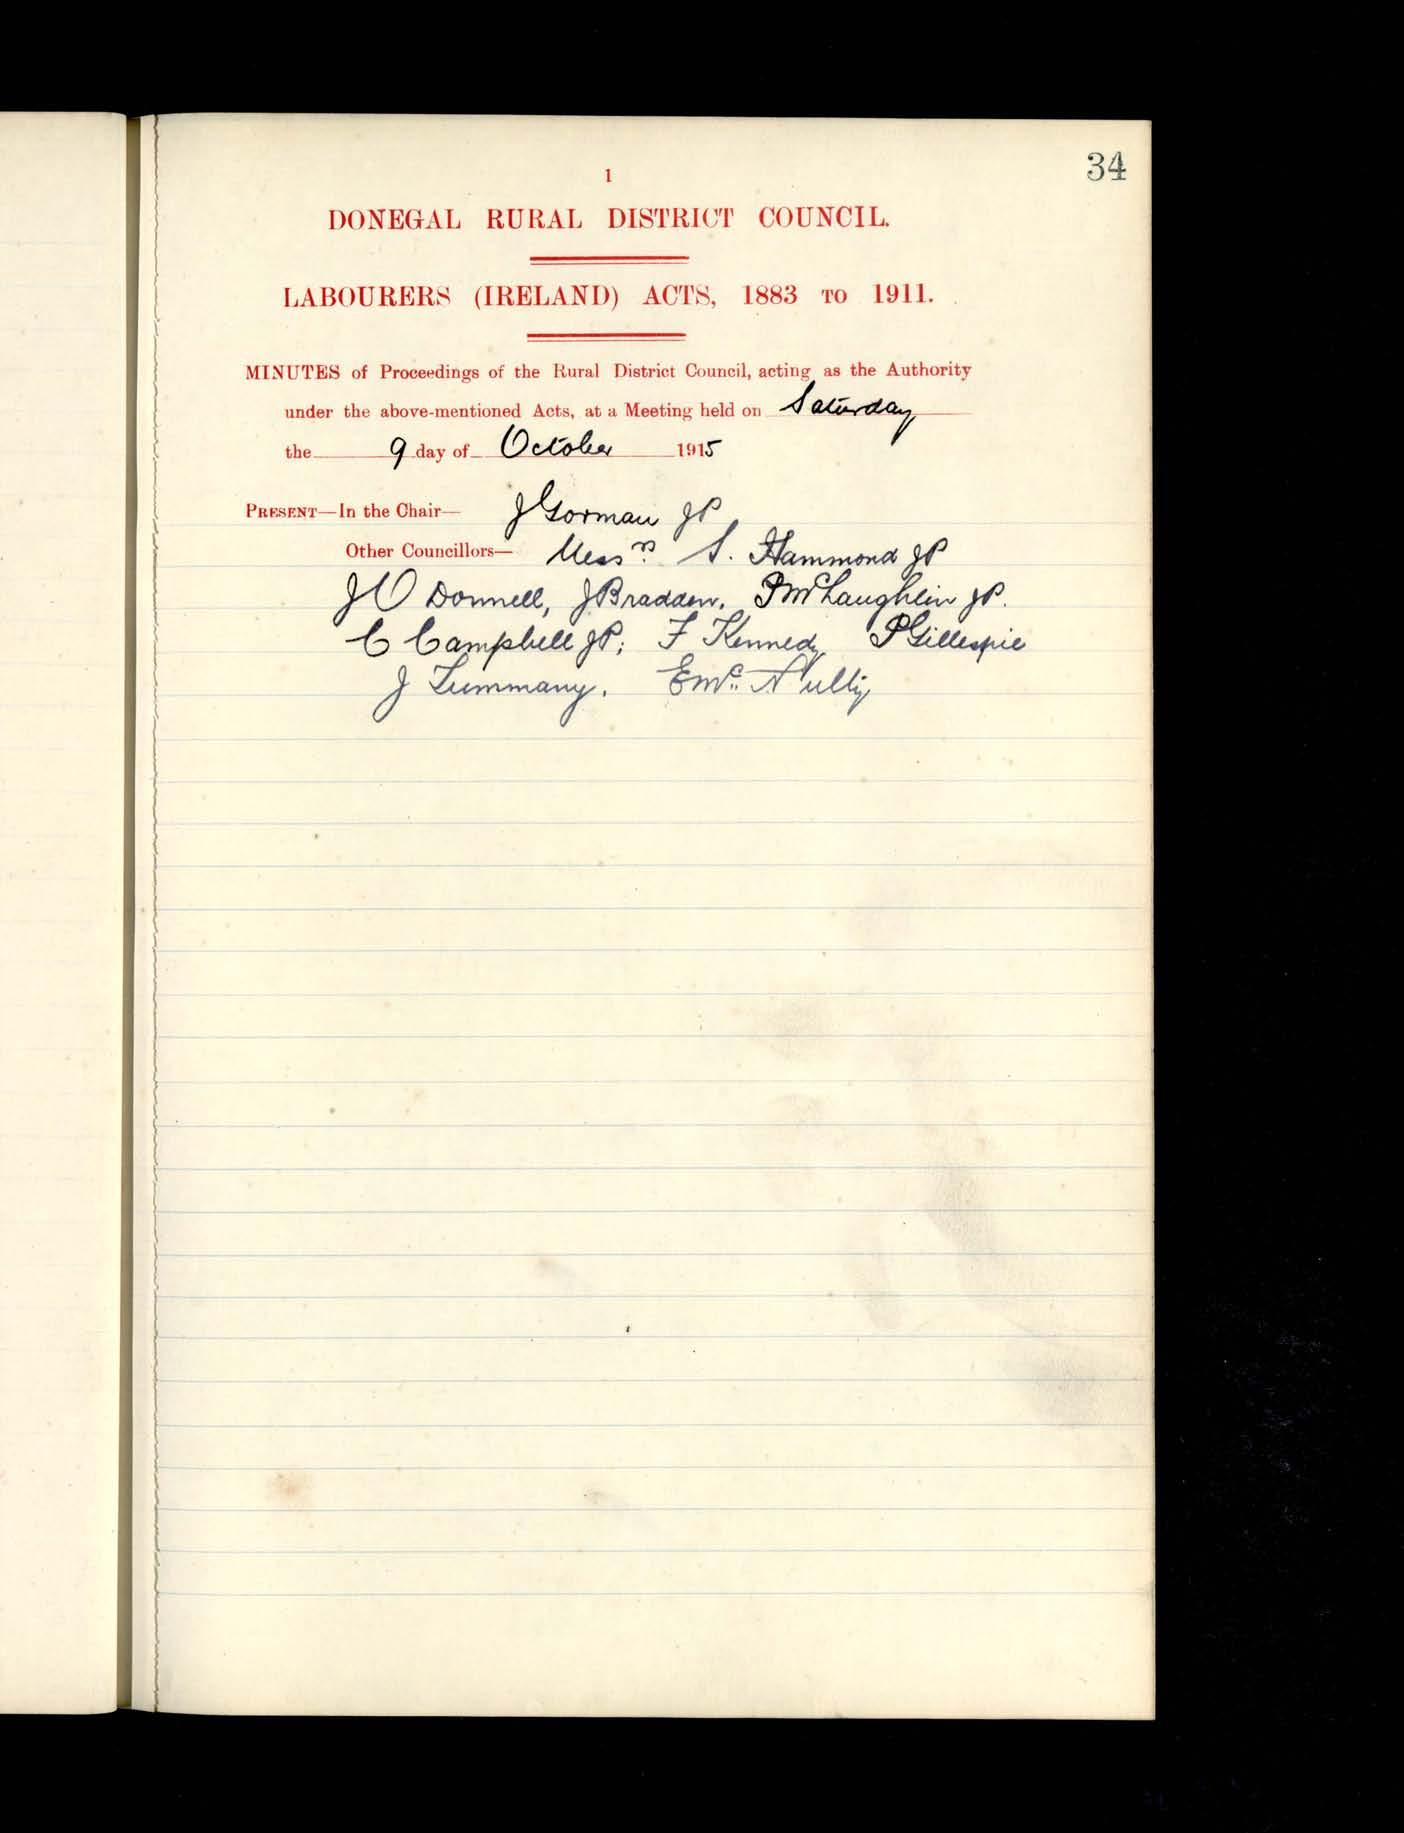 34
1
DONEGAL RURAL DISTRICT COUNCIL.
LABOURERS (IRELAND) ACTS, 1883 TO 1911.
MINUTES of Proceedings of the Rural District Council, acting as the Authority
under the above-mentioned Acts, at a Meeting held on Saturday
the 9 day of October 1915
PRESENT—In the Chair— J Gorman JP
Other Councillors— Messrs S. Hammond JP
J O Donnell, J Bradden, P McLaughlin JP.
C Campbell JP; F Kennedy P Gillespie
J Timmany. E Mc. Nulty